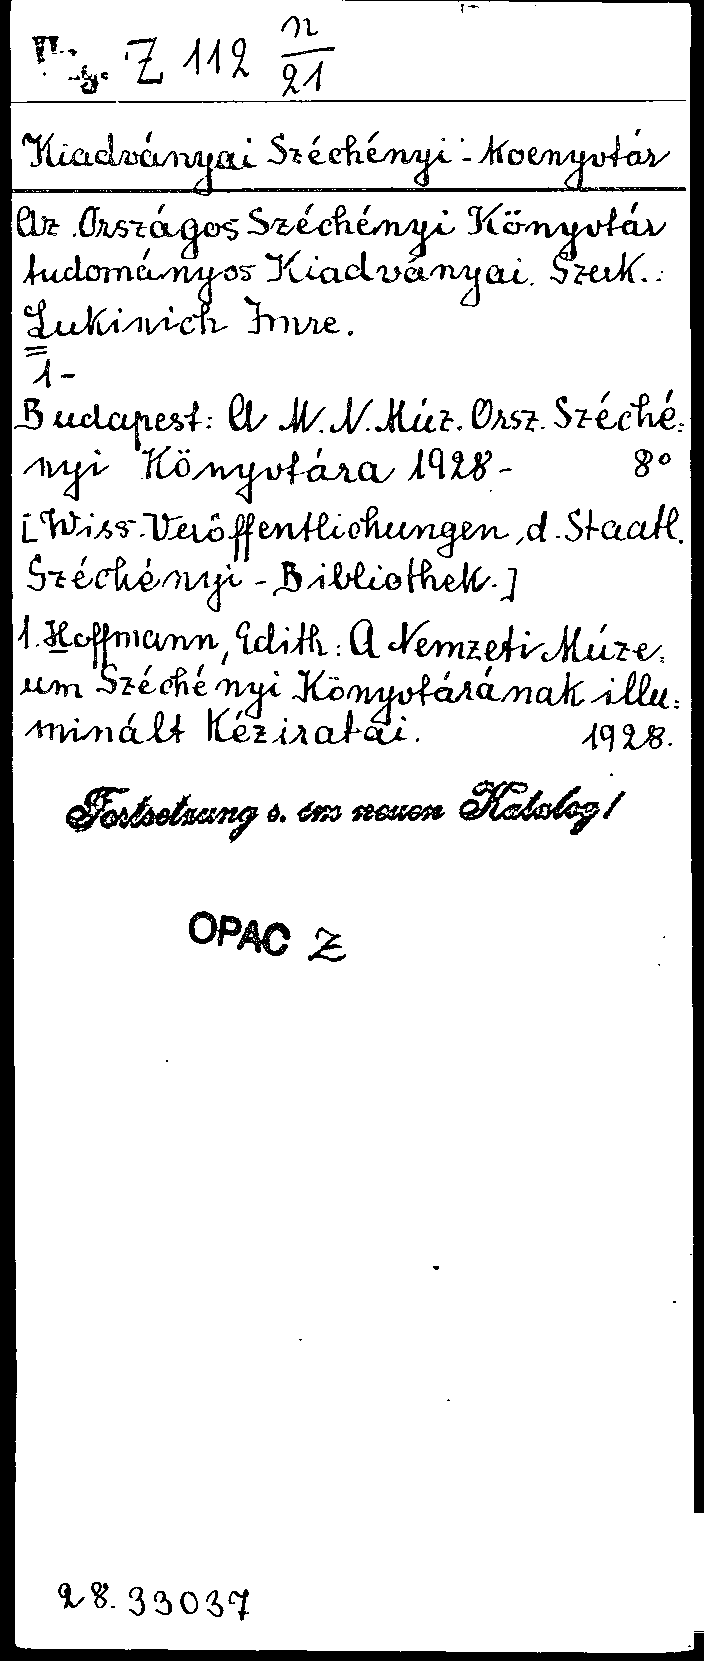 Z 112 n/21
Kiadványai Széchényi-Koenyvtár
Az Országos Széchényi Könyvtár
tudományos Kiadványai. Szerk.:
Lukinich Imre.
1-
Budapest: A M. N. Múz. Orsz. Széché=
nyi Könyvtára 1928- 8°
[Wiss. Veröffentlichungen, d. Staatl.
Széchényi-Bibliothek.]
1. Hoffmann, Edith: A Nemzeti Múze=
um Széchényi Könyvtárának illu=
minált Kéziratai. 1928.
Fortsetzung s. im neuen Katalog!
OPAC Z
28.33037